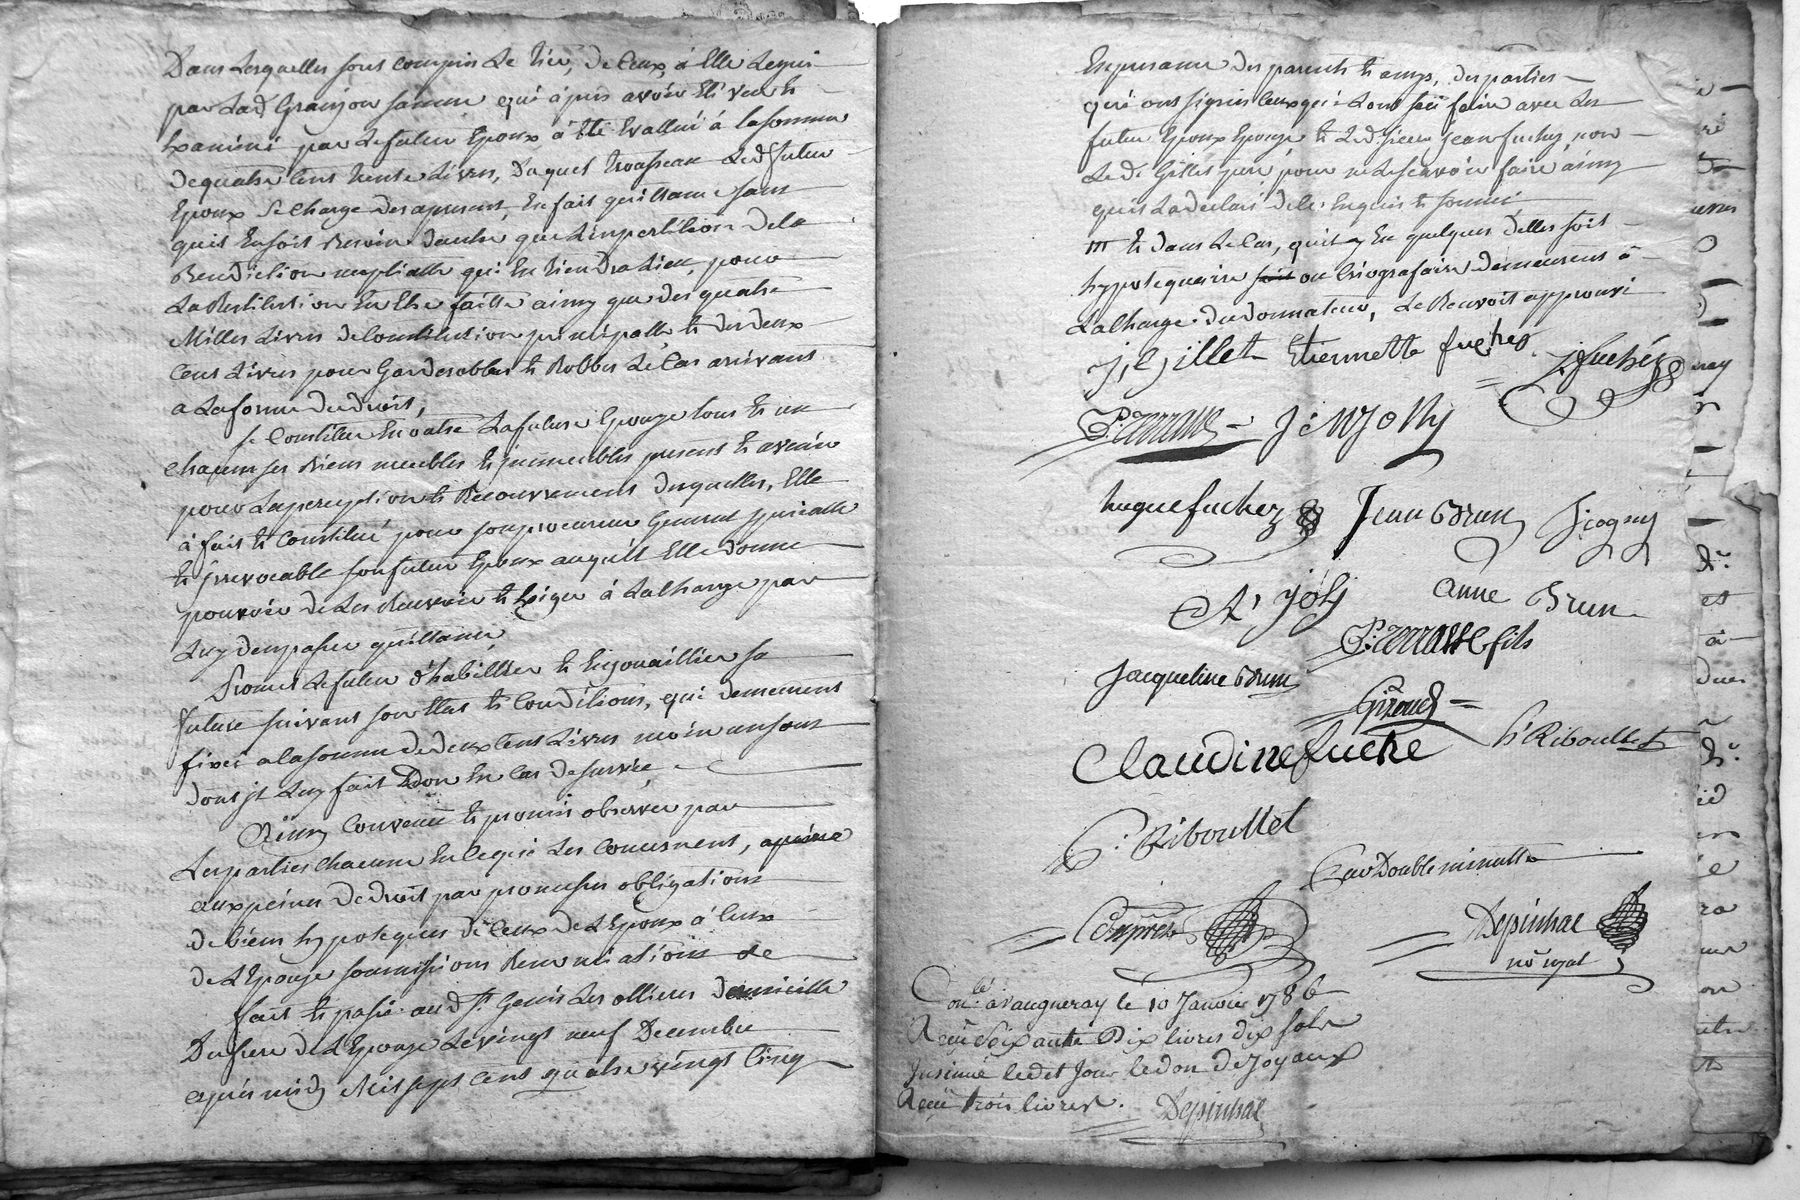 Dans Lesquelles sont compris Le tier, de Ceux, à Elle Leguéi
par Lad. Granjon sa mere qui apres avoir Eté veu et
Examiné par Le futur Epoux, à Eté Evallué à la somme
de quatre Cent trente Livres, Duquel trousseau Led. futur
Epoux Se charge des apresent, En fait quittance sans
quil En soit Besoin dautre que L'inpertition de la
Benediction nuptialle qui En tiendra Lieu, pour
La Restitution En Etre faitte ainsy que des quatre
Milles Livres de Constitution principalle et des deux
Cent Livres pour Garderobbes et Robbes Le Cas arrivant
a La forme du droit,
Se Constitue En outre La future Epouze tous et un
chacun ses Biens meubles et jmmeubles present et avenir
pour La perception et Recouvrement desquelles, Elle
à fait et Constitué pour son procureur General speciall
et jrrevocable son futur Epoux auquél Elle donne
pouvoir de Les Recevoir et Exiger à La charge par
Luy d'en passer quittance,
Promet Le futur d'habiller et Enjouaillier sa
future suivant son Etat et Conditions, qui demeurent
fixéz a la somme de deux Cent Livres moin un sout
dont jl Luy fait Don En Cas de survie,
Ainsy Convenu et promis observer par
Les parties chacune En ce qui Les Concernent, apeine
aux peines de droit par promesses obligations
de bien hypotequés de Ceux de L'Epoux à Ceux
de L'Epouze soumissions Renonciations de
fait et passé aud. St. Genis Les ollieres Domicille
Du frere de L'Epouze Le vingt neuf Decembre
apres midy Mil sept cent quatre vingt Cinq
En presance des parents et amys, des parties
qui ont signés Ceux qui Lont sçu faire avec Les
futur Epoux Epouze et Led. sieur jean fuchez, non
Led. Gillet peré pour ne Le sçavoir faire ainsy
quil La declaré de Ce Enquis et sommé
et dans Le Cas, quil y En quelques delles soit
hypotequaire soit ou Chirografaire demeurent à
La Charge du donnateur, Le Renvoit approuvé
J, C, Gillet Etiennette fuches
J. fuchéz
P. Terrasse J. M Jolly
hugue fuchez Jean Brun Ficogny
A. Joly anne Brun
P. Terrasse fils
Jacqueline Brun
Giraud
Claudine fuche h. Riboullet
C. Riboullet
Par Double minutte
Depinhac
no. royal
Conlé. à vaugneray le 10 Janvier 1786
Reçu Soixante Dix livres dix sols
Insinué ledet Jour le don de Joyaux
Reçu trois livres. Depinhac